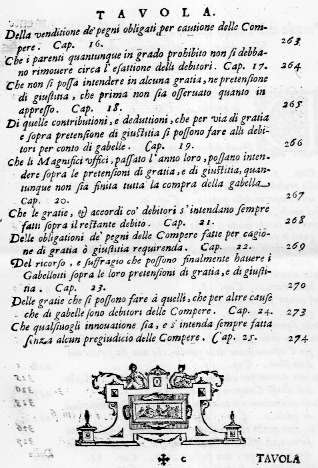 TAVOLA.
Della venditione de' pegni obligati per cautione delle Com-
pere. Cap. 16. 263
Che i parenti quantunque in grado prohibito non si debba-
no rimouere circa l'esattione delli debitori. Cap. 17. 264
Che non si possa intendere in alcuna gratia, ne pretensione
di giustitia, che prima non sia osseruato quanto in
appresso. Cap. 18. 265
Di quelle contributioni, e deduttioni, che per via di gratia
e sopra pretensione di giustitia si possono fare alli debi-
tori per conto di gabelle. Cap. 19. 266
Che li Magnifici Vffici, passato l'anno loro, possano inten-
dere sopra le pretensioni di gratia, e di giustitia, quan-
tunque non sia finita tutta la compra della gabella
Cap. 20. 267
Che le gratie, & accordi co' debitori s'intendano sempre
fatti sopra il restante debito. Cap. 21. 268
Delle obligationi de' pegni delle Compere fatte per cagio-
ne di gratia ò giustitia requirenda. Cap. 22. 269
Del ricorso, e suffragio che possono finalmente hauere i
Gabellotti sopra le loro pretensioni di gratia, e di giusti-
tia. Cap. 23. 270
Delle gratie che si possono fare à quelli, che per altre cause
che di gabelle sono debitori delle Compere. Cap. 24. 273
Che qualsiuogli innouatione sia, e s'intenda sempre fatta
senza alcun pregiudicio delle Compere. Cap. 25. 274
c TAVOLA